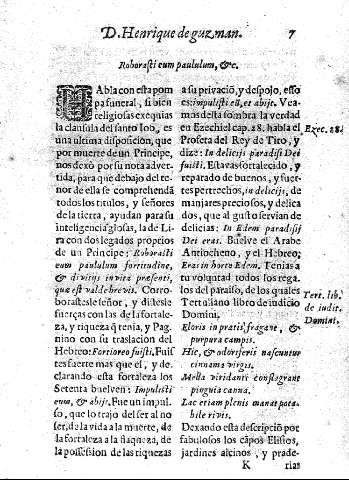 D. Henrique de guzman. 7
Roborasti eum paululum, &c.
HAbla con esta pom
pa funeral, si bien
religiosas exequias
la clausula del santo Iob, es
una ultima disposicion, que
por muerte de un Principe,
nos dexò por su nota adver-
tida, para que debajo del te-
nor de ella se comprehendã
todos los titulos, y señores
de la tierra, ayudan para su
inteligencia glosas, la de Li-
ra con dos legados proprios
de un Principe: Roborasti
eum paululum fortitudine,
& divitijs in vita præsenti,
quæ est valde brevis. Corro-
borastesle señor, y distesle
fuerças con las de la fortale-
za, y riqueza q̃ tenia, y Pag-
nino con su traslacion del
Hebreo: Fortior eo fuisti, Fuis
tes fuerte mas que el, y de-
clarando esta fortaleza los
Setenta buelven: Impulisti
eum, & abijt. Fue un impul-
so, que lo trajo del ser al no
ser, de la vida a la muerte, de
la fortaleza a la flaqueza, de
la possession de las riquezas
a su privaciõ, y despojo, esso
es: impulisti eũ, et abijt. Vea-
mos desta sombra la verdad
en Ezechiel cap. 28. habla el
Profeta del Rey de Tiro, y
dize: In delicijs paradisi Dei
fuisti. Estavas fortalecido, y
reparado de buenos, y fuer-
tes pertrechos, in delicijs, de
manjares preciosos, y delica
dos, que al gusto servian de
delicias: In Edem paradisi
Dei eras. Buelve el Arabe
Antiocheno, y el Hebreo;
Eras in horto Edem. Tenias a
tu voluntad todos los rega-
los del paraiso, de los quales
Tertuliano libro de iudicio
Domini.
Floris in pratis, fragane, &
purpura campis.
Hic, & odoriferis nascuntur
cinnama virgis.
Mella viridanti conflagrant
pinguia canna.
Lac etiam plenis manat pota-
bile rivis.
Dexando esta descripciõ por
fabulosos los cãpos Elisios,
jardines alcinos, y prade-
K rias
Exec. 28.
Tert. lib.
de iudic.
Domini.